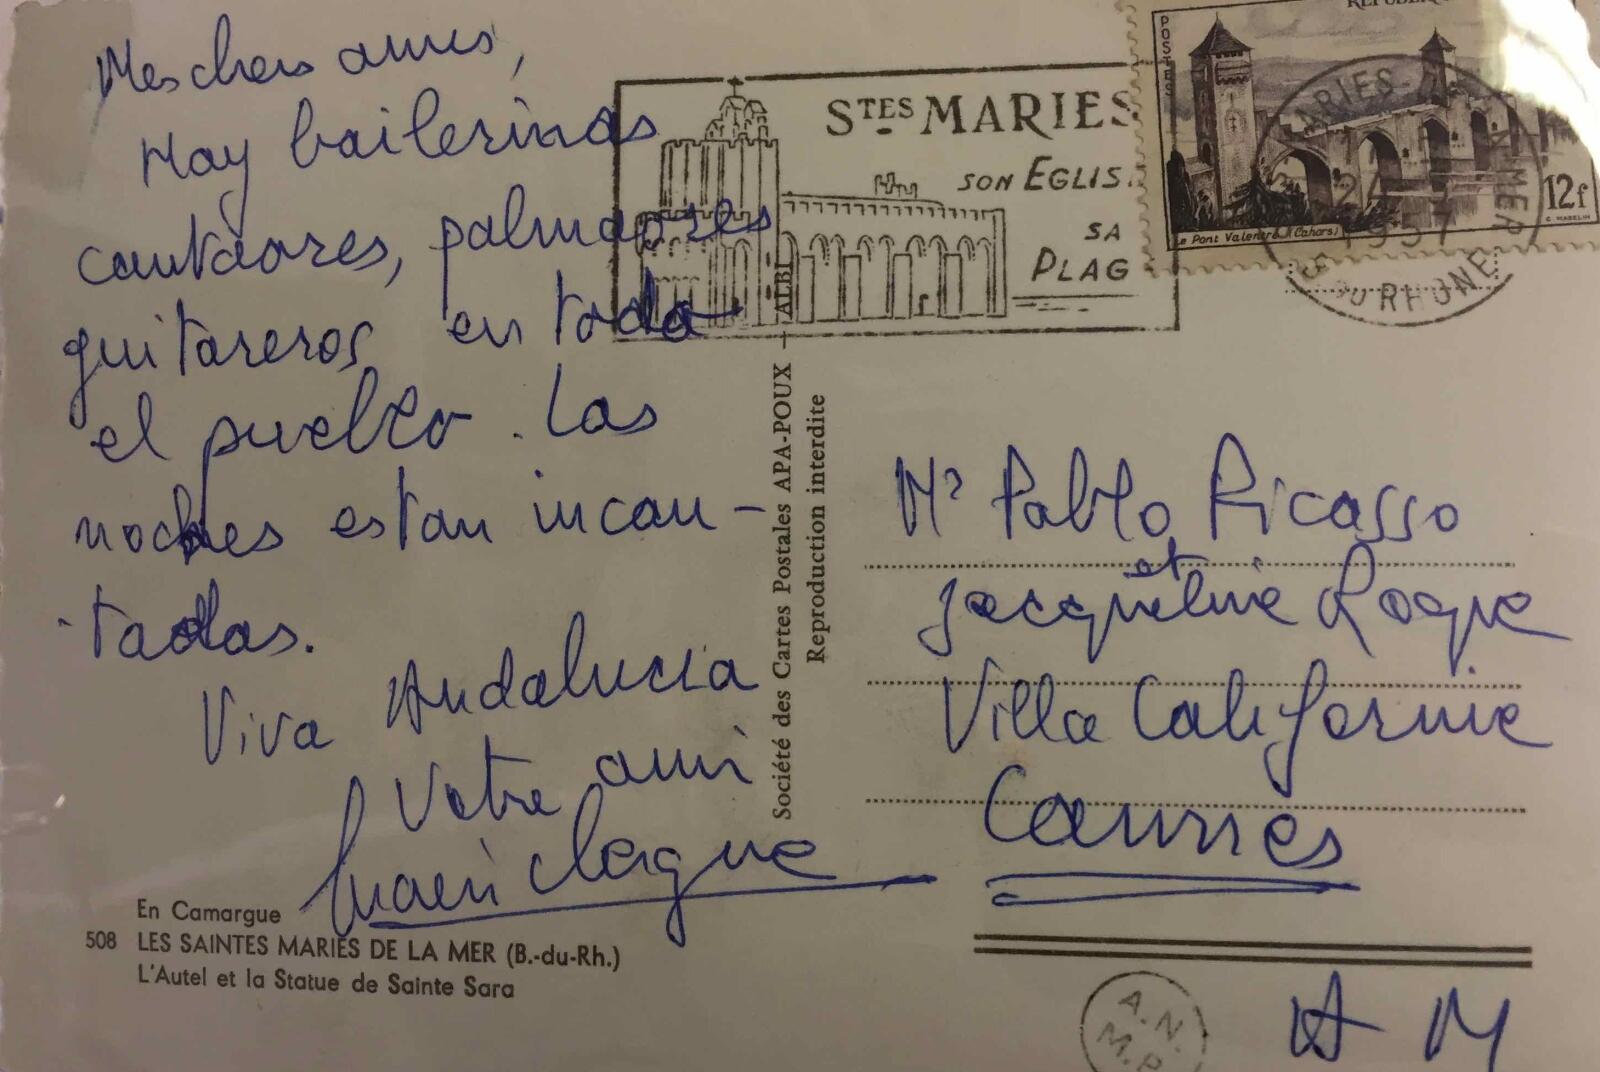 Mes chers amis,
Hay bailerinas
cantaores, palmaores
guitareros en toda
el pueblo. Las
noches estan incan-
tadas.
Viva Andalucia
Votre ami
Lucien Clergue
En Camargue
508 LES SAINTES MARIES DE LA MER (B.-du-Rh.)
L'Autel et la Statue de Sainte Sara
Société des Cartes Postales APA-POUX - ALBI
Reproduction interdite
STES MARIES
SON EGLIS
SA
PLAG
POSTES
12f
Le Pont Valentré (Cahors)
ARIES-
MER
24
1957
DU RHONE
Mr Pablo Picasso
et
Jacqueline Roque
Villa Californie
Cannes
A.N.
M.P.
A M